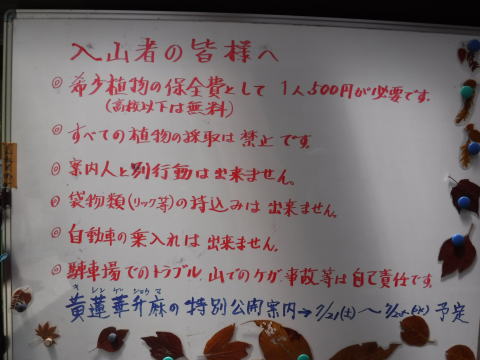 入山者の皆様へ
◎希少植物の保全費として 1人500円が必要です。
(高校以下は無料)
◎すべての植物の採取は禁止です。
◎案内人と別行動は出来ません。
◎袋物類(リック等)の持込みは出来ません。
◎自動車の乗入れは出来ません。
◎駐車場でのトラブル、山でのケガ、事故等は自己責任です。
キ レン ゲ ショウ マ
黄蓮華升麻の特別公開案内→7/21(土)〜7/25(水)予定